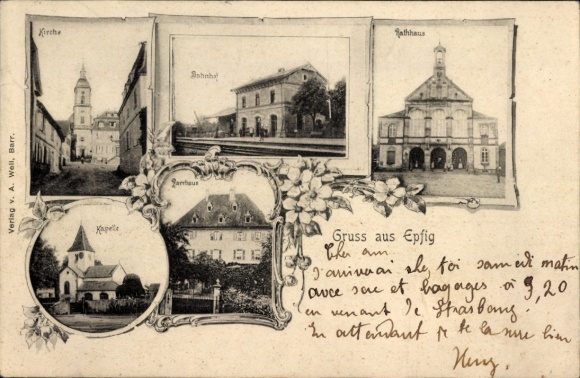 Kirche
Bahnhof
Rathhaus
Kapelle
Pfarrhaus
Verlag v. A. Well, Barr.
Gruss aus Epfig
Cher ami.
J'arriverai chez toi samedi matin
avec sac et bagages à 9,20
en venant de Strasbourg.
En attendant je te la serre bien